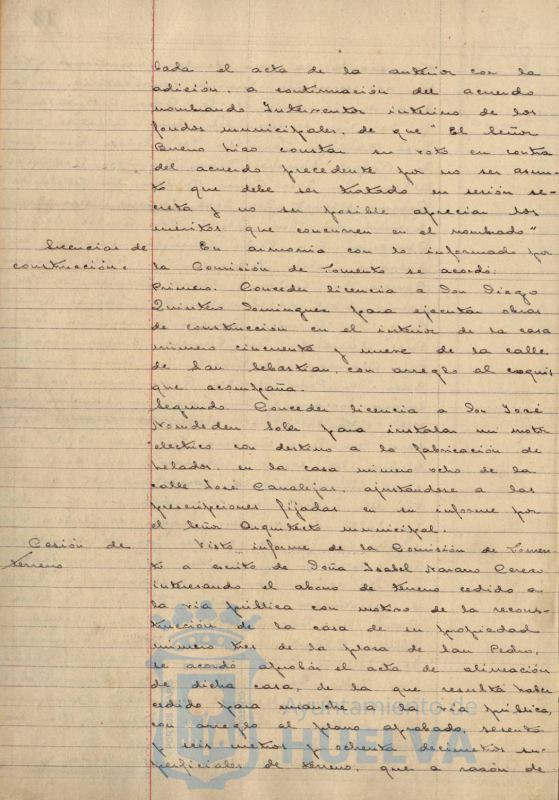 bada el acta de la anterior con la
adición, a continuación del acuerdo
nombrando Interventor interino de los
fondos municipales, de que "El Señor
Bueno hizo constar su voto en contra
del acuerdo precedente por no ser asun-
to que debe ser tratado en sesión se-
creta y no ser posible apreciar los
méritos que concurren en el nombrado"
Licencias de
construcción.
En armonia con lo informado por
la Comisión de Fomento se acordó:
Primero. Conceder licencia a Don Diego
Quintero Dominguez para ejecutar obras
de construcción en el interior de la casa
número cincuenta y nueve de la calle
de San Sebastian, con arreglo al croquis
que acompaña.
Segundo Conceder licencia a Don José
para instalar un motor
electrico con destino a la fabricación de
helados, en la casa número ocho de la
calle José Canalejas, ajustandose a las
prescripciones fijadas en su informe por
el Señor Arquitecto municipal.
Cesión de
terreno
Visto informe de la Comisión de Fomen-
to a escrito de Doña Isabel Naranjo Cerezo
interesando el abono de terreno cedido a
la via pública con motivo de la recons-
trucción de la casa de su propiedad
número tres de la plaza de San Pedro,
se acordó aprobar el acta de alineación
de dicha casa, de la que resulta haber
cedido para ensanche a la via pública,
con arreglo al plano aprobado, sesenta
y seis metros y ochenta decimetros su-
perficiales de terreno, que a razón de
Ayuntamiento de
HUELVA